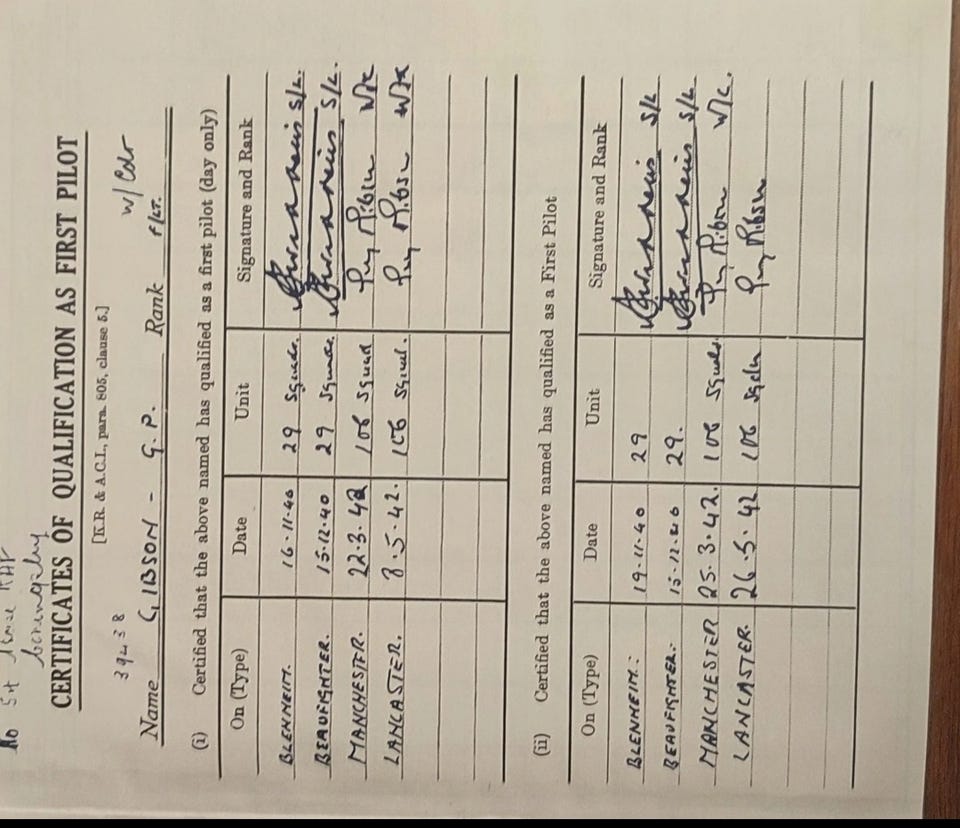 No 54 Base RAF
Coningsby
CERTIFICATES OF QUALIFICATION AS FIRST PILOT
[K.R. & A.C.I., para. 805, clause 5.]
39438 W/Cdr
Name GIBSON - G.P. Rank F/LT.
(i) Certified that the above named has qualified as a first pilot (day only)
On (Type) Date Unit Signature and Rank
BLENHEIM. 16.11.40 29 Squadn. S/L.
BEAUFIGHTER. 15.12.40 29 Squadn. S/L.
MANCHESTER. 22.3.42 106 Squad Guy Gibson W/C
LANCASTER. 8.5.42. 106 Squad. Guy Gibson W/C
(ii) Certified that the above named has qualified as a First Pilot
On (Type) Date Unit Signature and Rank
BLENHEIM: 19.11.40 29 S/L
BEAUFIGHTER. 15.12.40 29. S/L
MANCHESTER 25.3.42. 106 Squadn. Guy Gibson W/C.
LANCASTER. 26.5.42 106 Sqdn Guy Gibson